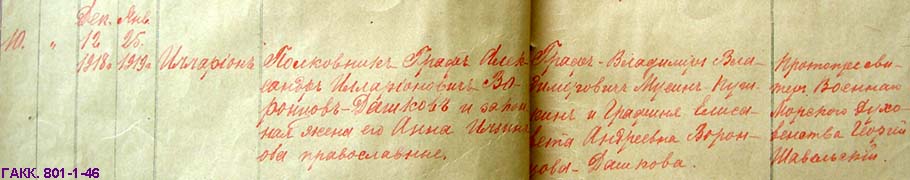 Дек. Янв.
10. " 12 25.
1918г 1919г Илларіонъ
Полковникъ Графъ Алек-
сандръ Илларіоновичъ Во-
ронцов-Дашковъ и закон-
ная жена его Анна Ильин-
ова православные.
Графъ Владиміръ Вла-
диміровичъ Мусинъ Пуш-
кинъ и Графиня Елиса-
вета Андреевна Ворон-
цова-Дашкова.
Протопресви-
теръ Военнаго
Морского Духо-
венства Георгій
Шавельскій.
ГАКК. 801-1-46